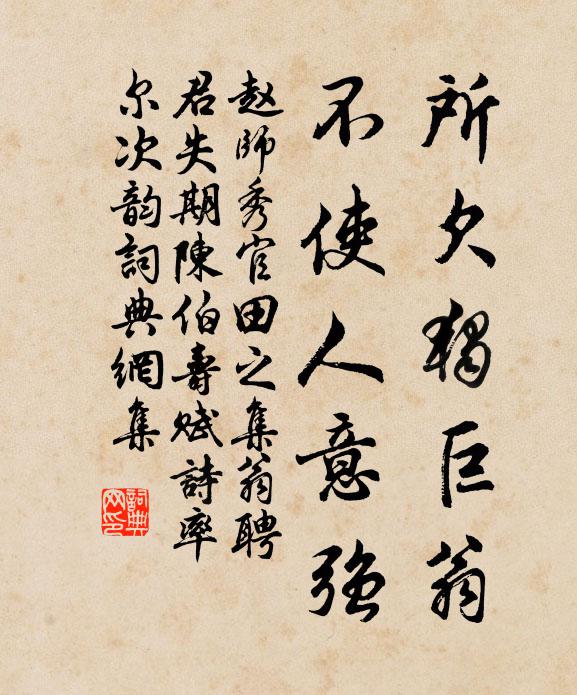 所欠独巨翁
不使人意强
赵师秀官田之集翁聘
君失期陳伯壽赋詩率
尔次韵詞典網集
詞典
网印